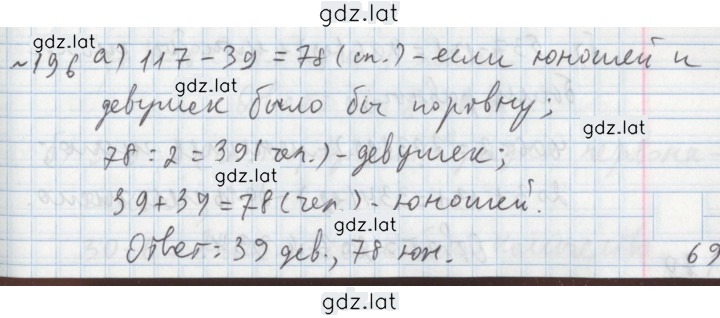 gdz.lat
№196 а) 117 - 39 = 78 (сп.) - если юношей и
gdz.lat
gdz.lat
девушек было бы поровну;
gdz.lat
78 : 2 = 39 (чел.) - девушек;
gdz.lat
39 + 39 = 78 (чел.) - юношей.
gdz.lat
Ответ: 39 дев., 78 юн.
69
gdz.lat